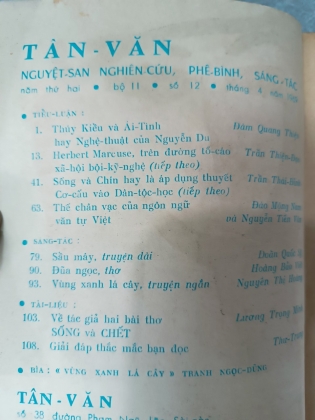 TÂN - VĂN
NGUYỆT-SAN NGHIÊN-CỨU, PHÊ-BÌNH, SÁNG-TÁC
năm thứ hai • bộ II • số 12 • tháng 4 năm
• TIỂU-LUẬN :
1. Thúy Kiều và Ái-Tình Đàm Quang
hay Nghệ-thuật của Nguyễn Du
13. Herbert Marcuse, trên đường tố-cáo Trần Thiện
xã-hội bội-kỹ-nghệ (tiếp theo)
41. Sống và Chín hay là áp dụng thuyết Trần Thái
Cơ-cấu vào Dân-tộc-học (tiếp theo)
63. Thế chân vạc của ngôn ngữ Đàn Mộng
văn tự Việt và Nguyễn Tiến
• SÁNG-TÁC :
79. Sầu mây, truyện dài Doãn Quốc
90. Đũa ngọc, thơ Hoàng Bảo
93. Vùng xanh lá cây, truyện ngắn Nguyễn Thị
• TÀI-LIỆU :
103. Về tác giả hai bài thơ Lương Trọng
SỐNG và CHẾT
108. Giải đáp thắc mắc bạn đọc
• BÌA : « VÙNG XANH LÁ CÂY » TRANH NGỌC-DŨNG
TÂN - VĂN
số 38 đường Phạm Ngũ Lão